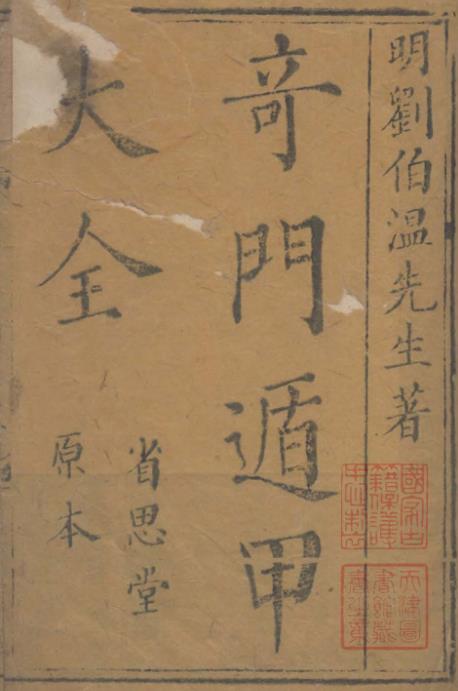 明劉伯温先生著
竒門遁甲
大全
省思堂
原本